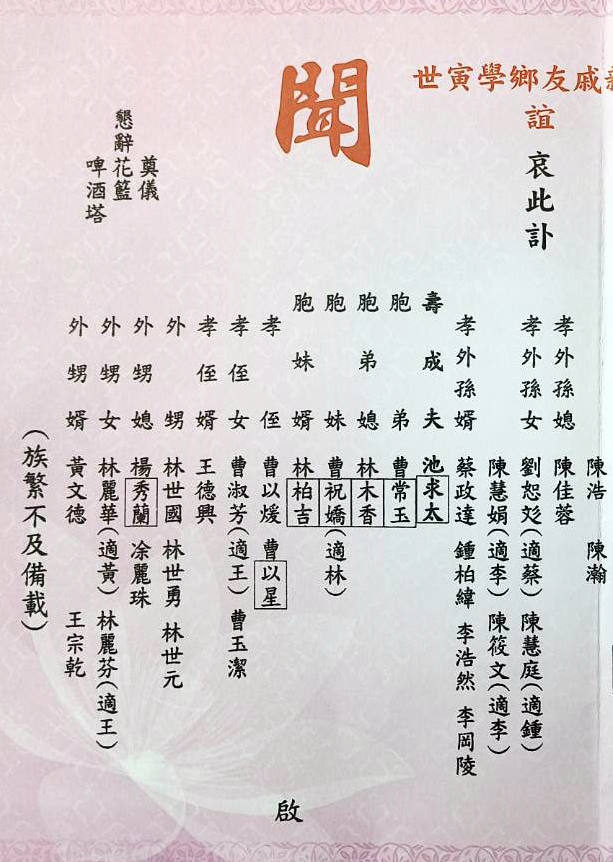 戚友鄉學寅世
誼
哀此訃
聞
陳浩 陳瀚
孝外孫媳 陳佳蓉
孝外孫女 劉恕彣(適蔡) 陳慧庭(適鍾)
陳慧娟(適李) 陳筱文(適李)
孝外孫婿 蔡政達 鍾柏緯 李浩然 李岡陵
壽成夫 池求太
胞弟 曹常玉
胞弟媳 林木香
胞妹 曹祝嬌(適林)
胞妹婿 林柏吉
孝侄 曹以煖 曹以星
孝侄女 曹淑芳(適王) 曹玉潔
孝侄婿 王德興
外甥 林世國 林世勇 林世元
外甥媳 楊秀蘭 凃麗珠
外甥女 林麗華(適黃) 林麗芬(適王)
外甥婿 黃文德 王宗乾
(族繁不及備載)
啟
奠儀
懇辭花籃
啤酒塔